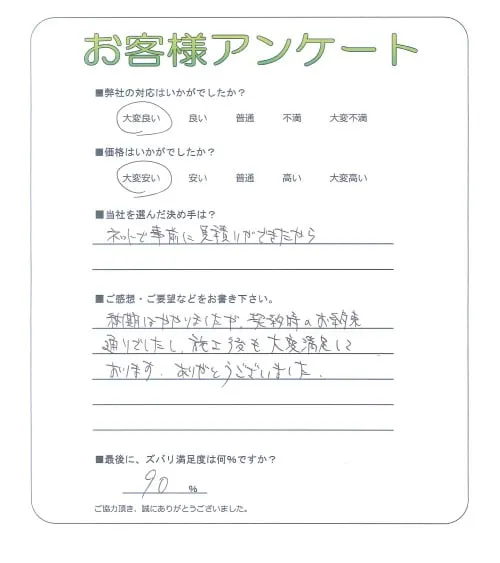 お客様アンケート
■弊社の対応はいかがでしたか？
大変良い 良い 普通 不満 大変不満
■価格はいかがでしたか？
大変安い 安い 普通 高い 大変高い
■当社を選んだ決め手は？
ネットで事前に見積りができたから
■ご感想・ご要望などをお書き下さい。
納期はかかりましたが、契約時のお約束
通りでしたし、施工後も大変満足して
おります。ありがとうございました。
■最後に、ズバリ満足度は何%ですか？
90 %
ご協力頂き、誠にありがとうございました。